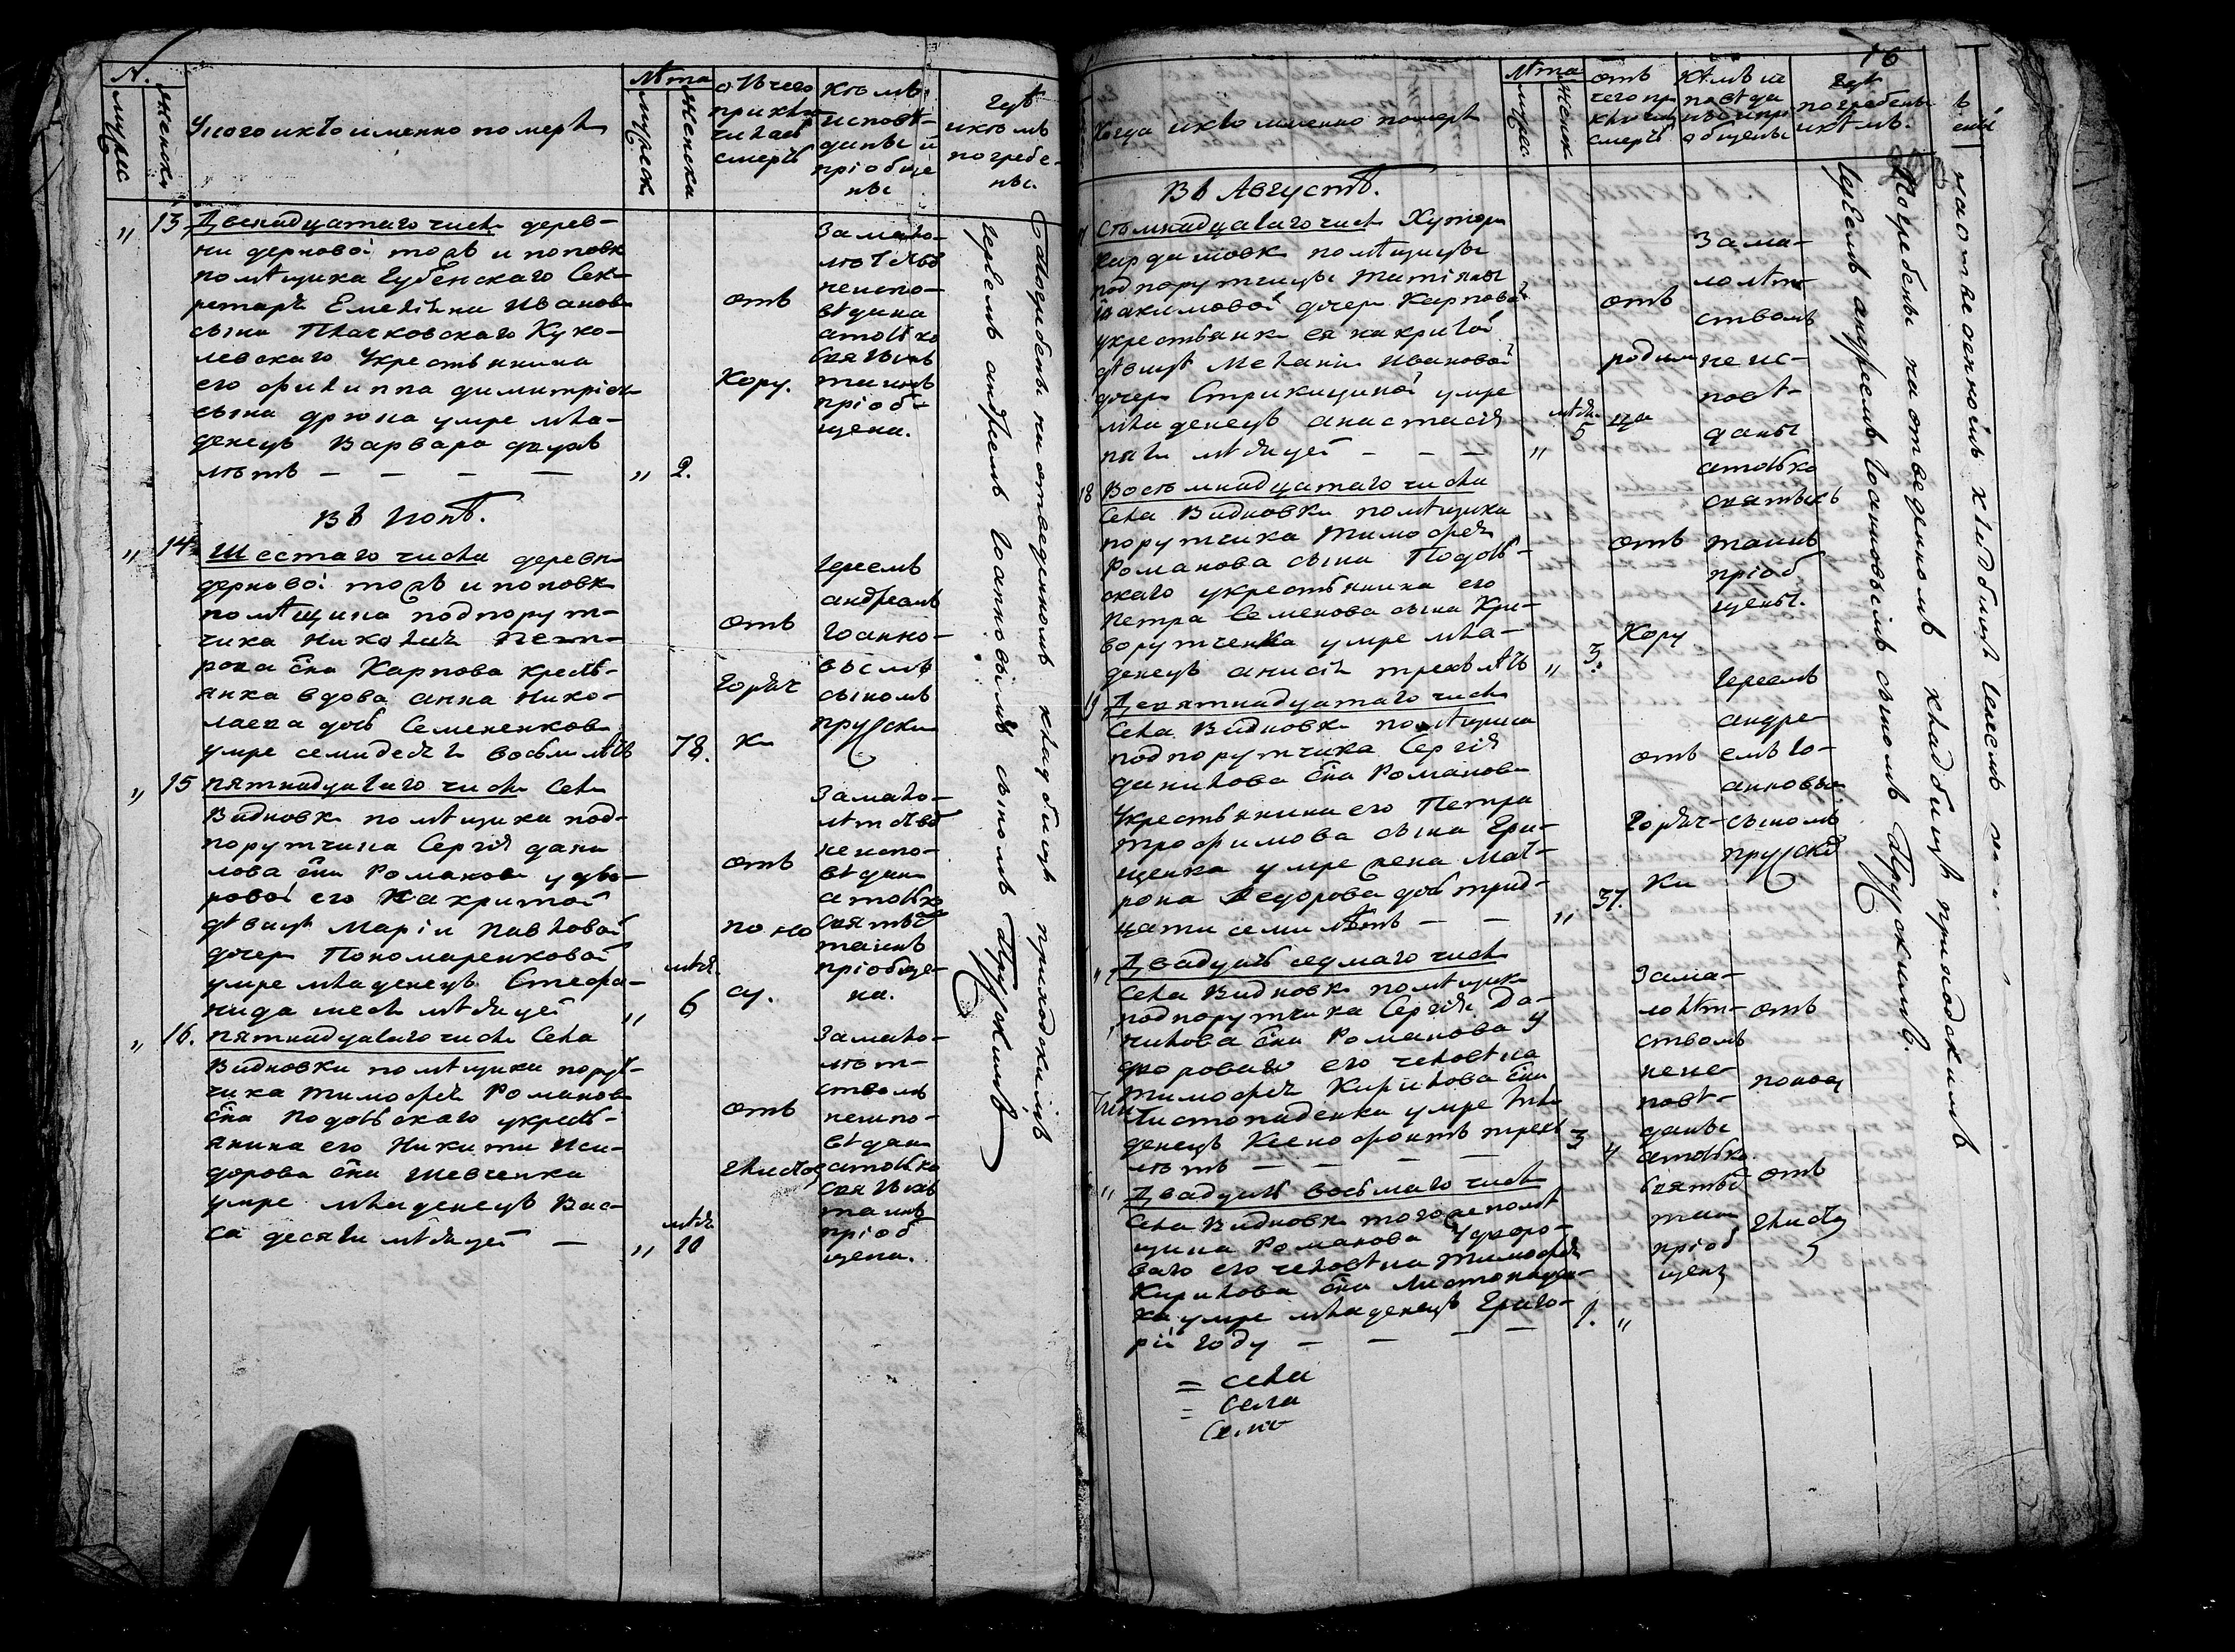 №.
мужес
женск
У кого и кто именно померъ
лѣта
мужеск
женска
отчего
приклю
чилась
смерть
кѣмъ
исповѣ-
даны и
пріобще
ны
гдѣ
и кѣмъ
погребе-
ны.
„ 13
Двенадцатаго числа дерев-
ни дерновой тожъ и поповк
помѣщика Губенскаго Сек-
ретаря Емеліяна Иванова
сына Плачковскаго Куко-
левскаго у крестьянина
его филиппа димитріева
сына дрюна умре мла-
денецъ Варвара двухъ
лѣтъ — — — — „ 2.
отъ
Кору.
За мало-
лѣтство
неиспо-
вѣдана
а только
святыхъ
таинъ
пріоб-
щена.
Въ Іюлѣ.
„ 14
Шестаго числа деревн
дерновой тожъ и поповк
помѣщика подпорут-
чика Николая Пет-
рова сна Карпова кресть-
янка вдова анна Нико-
лаева дочь Семененкова
умре семидесяти восьми лѣтъ 78.
отъ
Горяч
ки
Іереемъ
андреемъ
Іоанно-
вымъ
сыномъ
прускимъ
„ 15
пятнадцатаго числа Села
Видновки помѣщика под-
порутчика Сергія дани
лова сна Романова у дво-
ровой его Накритой
дѣвицы Маріи Павловой
дочери Пономаренковой
умре младенецъ Стефа-
нида шести мѣсяцей „ мѣся 6
отъ
поно
су.
За мало-
лѣтство
неиспо-
вѣдана
а только
святыхъ
таинъ
пріобще-
на.
„ 16.
пятнадцатаго числа Села
Видновки помѣщика порут-
чика Тимофея Романова
сна Подольскаго у кресть-
янина его Никиты Иси-
дорова сна Шевченка
умре младенецъ Вас-
са десяти мѣсяцей — „ мѣся 10
отъ
глисто
За мало-
лѣт-
ствомъ
неиспо-
вѣдана
а только
святыхъ
таинъ
пріоб
щена.
Погребены на отведенномъ кладбищѣ приходскимъ
Іереемъ андреемъ Іоанновымъ сыномъ Прускимъ
16
Когда и кто именно померъ
лѣта
мужес
женск
отъ
чего при
смерть
гдѣ
погребены
и кѣмъ.
Въ Августѣ.
семнадцатаго числа Хутора
Кардаховк помѣщицы
подпорутчицы Татіяны
Іакимовой дочери Карповой
у крестьянки ея накритой
дѣвицы Меланіи Ивановой
дочери Стрикициной умре
младенецъ анастасія
пяти мѣсяцей — — — „ мѣся 5
отъ
родим
ца
За ма-
лолѣт
ствомъ
не ис-
повѣ-
даны
а только
святыхъ
таинъ
пріоб
щены.
18
Восемнадцатаго числа
Села Видновки помѣщика
порутчика Тимофея
Романова сына Подоль-
скаго у крестьянина его
Петра Семенова сына Кри-
ворутченка умре мла-
денецъ анисія трехъ лѣтъ „ 3.
отъ
Кору
19
Девятнадцатаго числа
Села Видновки помѣщика
подпорутчика Сергія
данилова сна Романова
у крестьянина его Петра
трофимова сына Гри-
щенка умре жена Мат-
рона Федорова дочь трид-
цати семи лѣтъ — — „ 37.
отъ
Горяч-
ки
Іереемъ
андре-
емъ Іо-
анновым
сыномъ
прускимъ
„
Двадцать седмаго числа
Села Видновки помѣщика
подпорутчика Сергія Да-
нилова сна Романова у
двороваго его человѣка
тимофея Кирилова сна
Листопаденка умре мла
денецъ Ксенофонтъ трехъ
лѣтъ — — — — 3 „
отъ
поносу
За ма-
лолѣт-
ствомъ
неис-
повѣ-
даны
а только
святых
таин
пріоб
щены
„
Двадцать восьмаго числа
Села Видновки того же помѣ
щика Романова у дворо-
ваго его человѣка Тимофея
Кирилова сна Листопаден-
ка умре младенецъ Григо-
рій году — — — — 1. „
отъ
глисту
= села
= села
Село
Погребены на отведенномъ кладбищѣ приходскимъ
Іереемъ андреемъ Іоанновымъ сыномъ Прускимъ.
на отведенномъ кладбищѣ Іереемъ